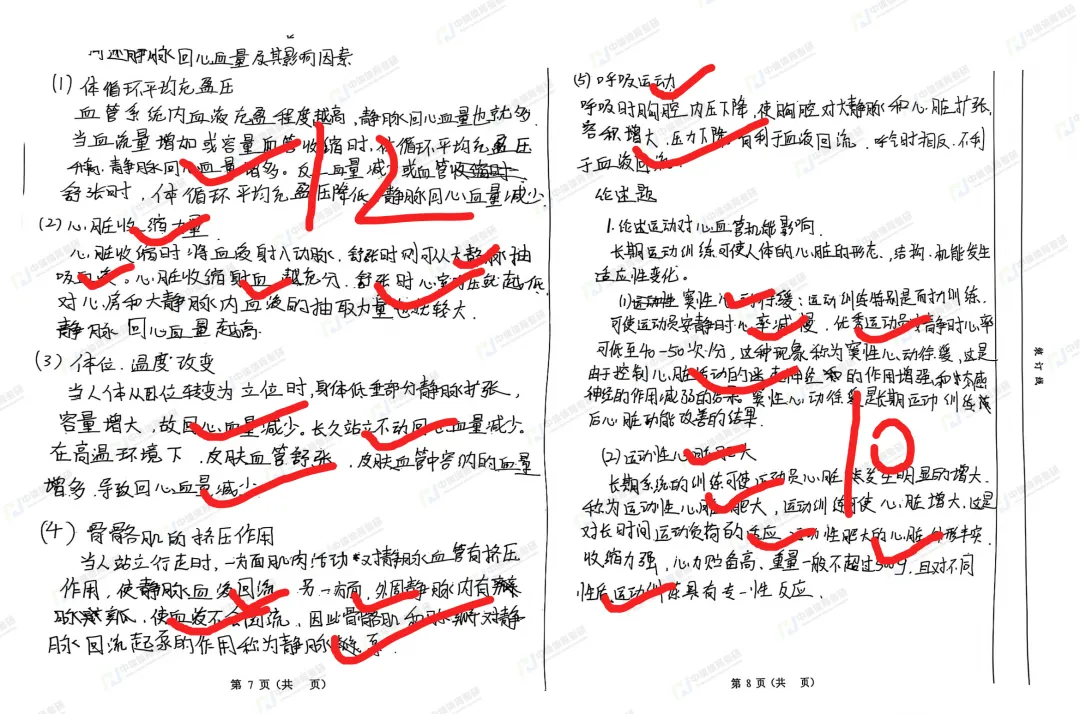 问述静脉回心血量及其影响因素
(1) 体循环平均充盈压
血管系统内血液充盈程度越高,静脉回心血量也就多.
当血流量增加或容量血管收缩时,体循环平均充盈压
升高,静脉回心血量增多。反 血量减少或血管收缩时
舒张时,体循环平均充盈压降低,静脉回心血量减少.
(2) 心脏收缩力量
心脏收缩时将血液射入动脉,舒张时则可从大静脉抽
吸血液。心脏收缩 射血越充分,舒张时心室内压就越低.
对心房和大静脉内血液的抽取力量也就较大.
静脉回心血量越高.
(3) 体位、温度改变
当人体从卧位转变为立位时,身体低垂部分静脉扩张,
容量增大,故回心血量减少。长久站立不动回心血量减少.
在高温环境下,皮肤血管舒张,皮肤血管中容纳的血量
增多,导致回心血量减少
(4) 骨骼肌的挤压作用
当人站立行走时,一方面肌肉活动对静脉血管有挤压
作用,使静脉血液回流 另一方面,外周静脉内有瓣
使血液不会回流,因此骨骼肌和 对静
脉回流起泵的作用称为静脉 泵.
12
第 7 页 (共 页)
(5) 呼吸运动
呼吸时胸腔内压下降,使胸腔对大静脉和心脏扩张,
容积增大,压力下降 有利于血液回流. 呼气时相反,不利
于血液回流.
论述题
1. 论述运动对心血管机能影响.
长期运动训练可使人体的心脏的形态、结构、机能发生
适应性变化。
(1) 窦性心动徐缓:运动训练特别是耐力训练.
可使运动员安静时心率减慢,优秀运动员安静时心率
可低至40-50次/分,这种现象称为窦性心动徐缓,这是
由于控制心脏活动的迷走神经 的作用增强和交感
神经的作用减弱的结果.窦性心动徐缓是长期运动训练
后心脏功能改善的结果.
(2) 运动性心脏肥大
长期系统的训练可使运动员心脏 发生明显的增大.
称为运动性心脏肥大,运动训练可使心脏增大,这是
对长时间运动负荷的适应 运动性肥大的心脏外形丰实.
收缩力强,心力贮备高、重量一般不超过500g,且对不同
性质运动训练具有专一性反应.
10
第 8 页 (共 页)
装 订 线
中硕体育考研